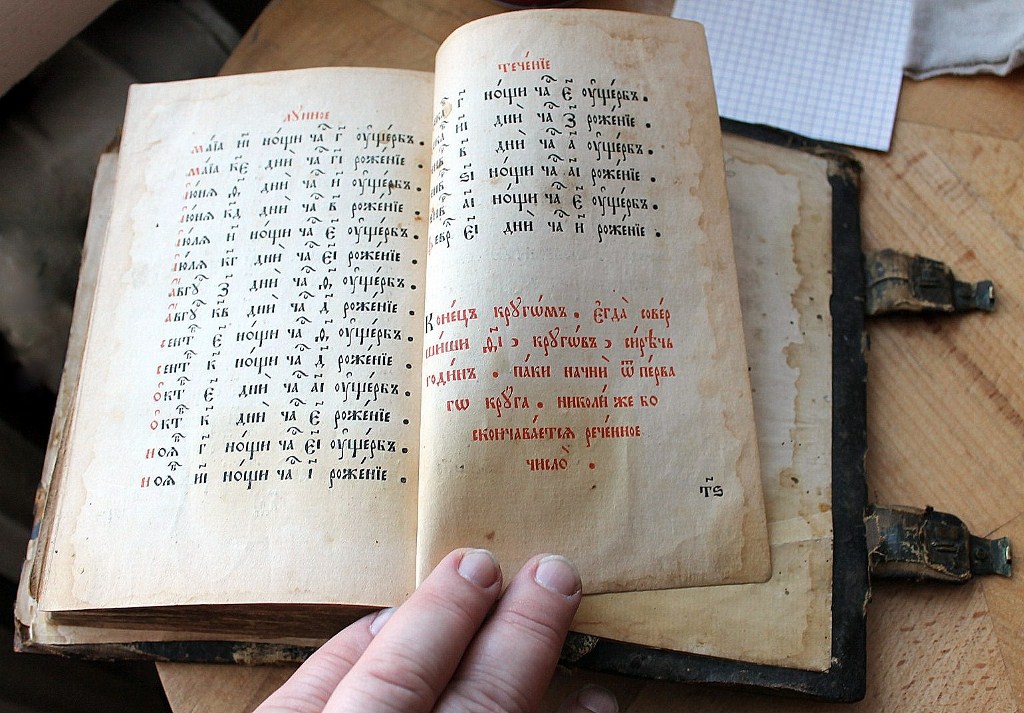 лꙋ́нное
ма́їа и҃і но́щи ча̑ г҃ ᲂу҆ще́рбъ .
ма́їа к҃е днѝ ча̑ г҃і роже́нїе .
і҆ю́нѧ ѳ҃ днѝ ча̑ и҃ ᲂу҆ще́рбъ .
і҆ю́нѧ к҃д днѝ ча̑ в҃ роже́нїе .
і҆ю́лѧ и҃ но́щи ча̑ є҃ ᲂу҆ще́рбъ .
і҆ю́лѧ к҃г днѝ ча̑ є҃і роже́нїе .
а҆́вгꙋ ѡ҃ днѝ ча̑ ѳ҃ ᲂу҆ще́рбъ .
а҆́вгꙋ к҃в днѝ ча̑ д҃ роже́нїе .
сент є҃ но́щи ча̑ ѳ҃ ᲂу҆ще́рбъ .
сент к҃ но́щи ча̑ д҃ роже́нїе .
ѻ҆кт є҃ днѝ ча̑ а҃і ᲂу҆ще́рбъ .
ѻ҆кт к҃ днѝ ча̑ є҃ роже́нїе .
ноѧ г҃ но́щи ча̑ є҃і ᲂу҆ще́рбъ .
ноѧ и҃і но́щи ча̑ і҃ роже́нїе .
тече́нїе
г҃ но́щи ча̑ є҃ ᲂу҆ще́рбъ .
и҃і днѝ ча̑ з҃ роже́нїе .
в҃ днѝ ча̑ а҃ ᲂу҆ще́рбъ .
ѕ҃і но́щи ча̑ а҃і роже́нїе .
а҃і но́щи ча̑ є҃ ᲂу҆ще́рбъ .
февр є҃і днѝ ча̑ и҃ роже́нїе .
Коне́цъ крꙋгѡ́мъ . Є҆гда̀ сове́р
ши́ши ѳ҃і , крꙋгѡ́въ , си́рѣчь
годи́нъ . па́ки начнѝ ѿ пе́рва
гѡ крꙋ́га . николи́ же бо
скончава́етсѧ рече́нное
число̀ .
т҃ѕ